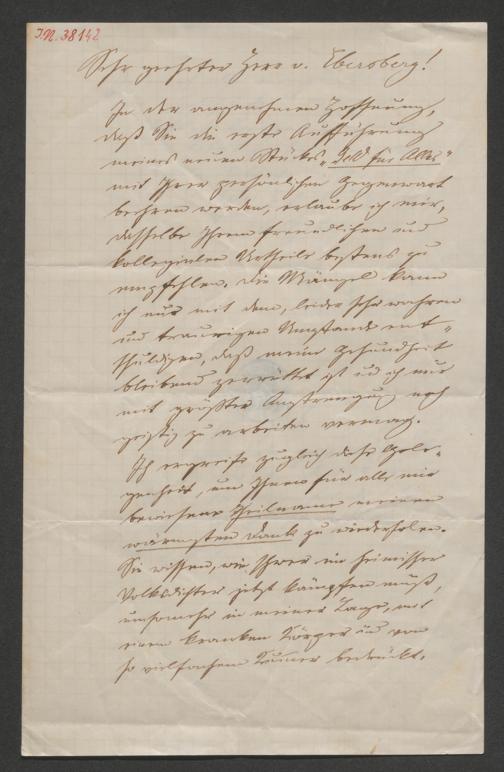 J.N. 38142
Sehr geehrter Herr v. Ebersberg!
In der angenehmen Hoffnung,
daß Sie die erste Aufführung
meines neuen Stückes „Geld für Alles"
mit Ihrer persönlichen Gegenwart
beehren werden, erlaube ich mir,
dasselbe Ihrem freundlichen und
kollegialen Urtheile bestens zu
empfehlen. Die Mängel kann
ich nur mit dem, leider sehr wahren
und traurigen Umstande ent-
schuldigen, daß meine Gesundheit
bleibend zerrüttet ist und ich nur
mit größter Anstrengung noch
geistig zu arbeiten vermag.
Ich ergreife zugleich diese Gele-
genheit, um Ihnen für alle mir
bewiesene Theilname meinen
wärmsten Dank zu wiederholen.
Sie wissen, wie schwer ein heimischer
Volksdichter jetzt kämpfen muß,
umsomehr in meiner Lage, mit
einem kranken Körper und von
so vielfachem Kummer bedrückt.